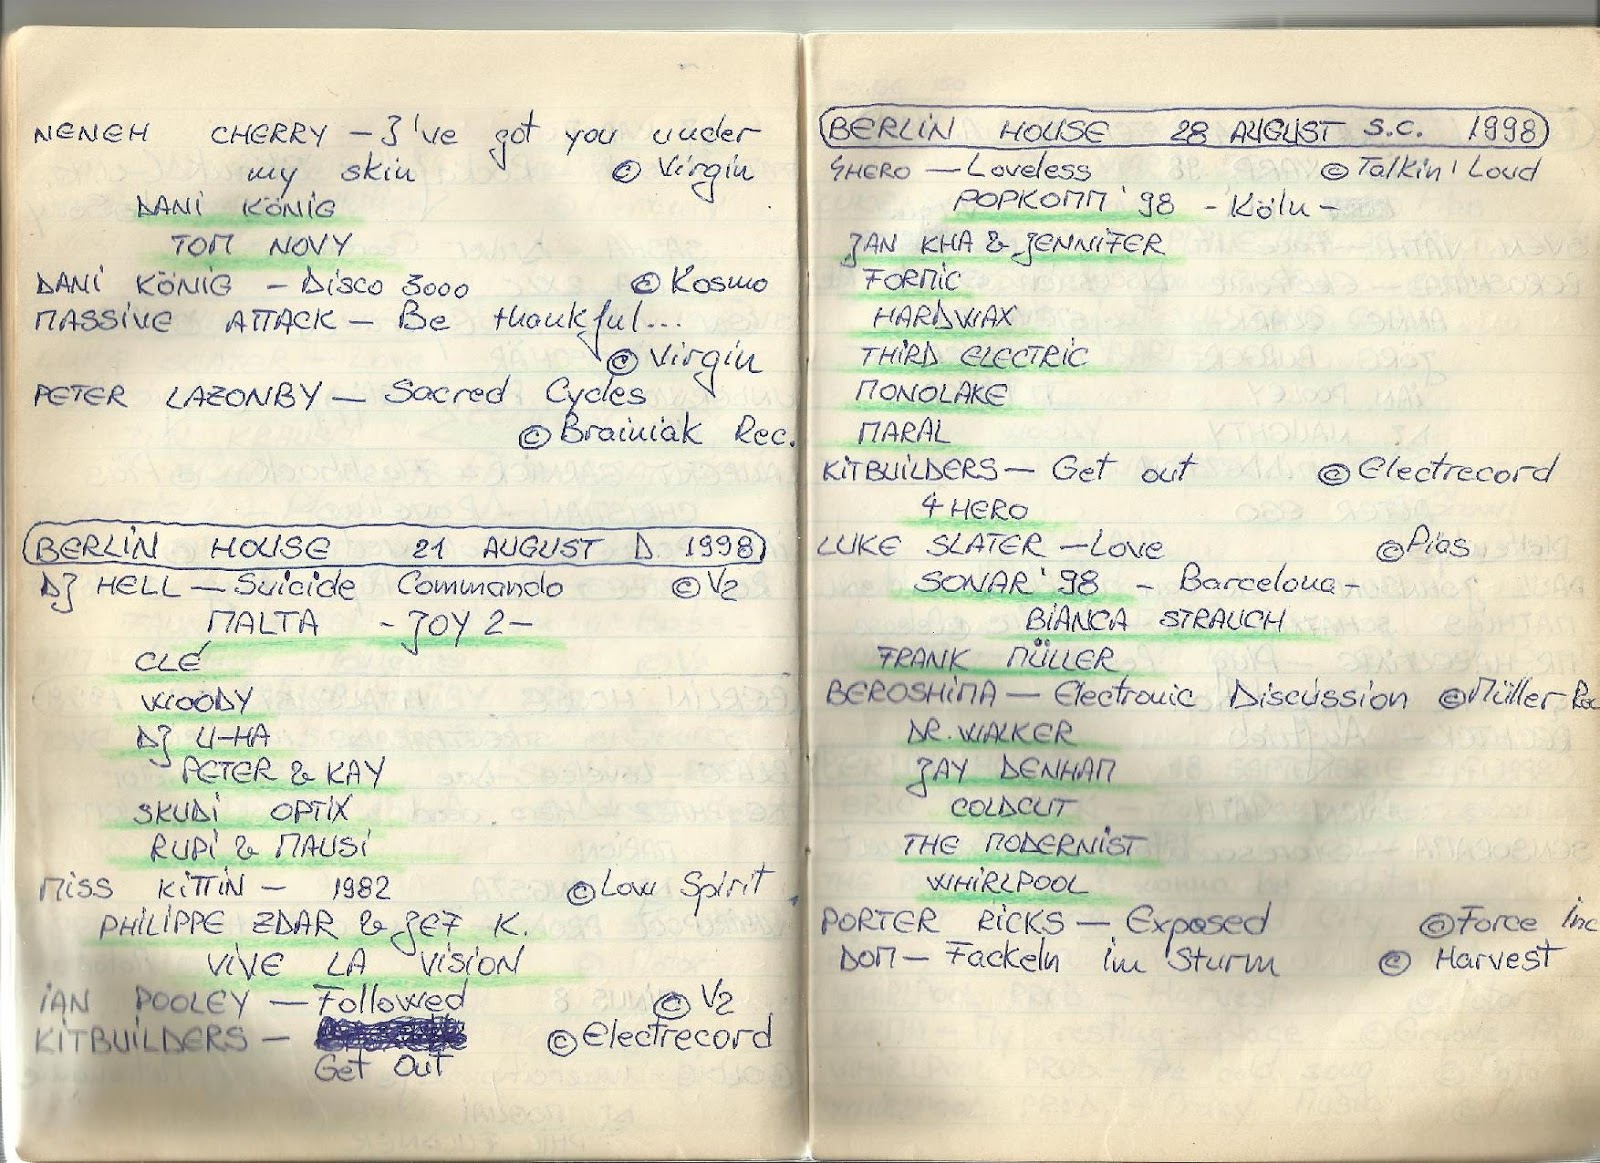 NENEH CHERRY – I've got you under
my skin © Virgin
DANI KÖNIG
TOM NOVY
DANI KÖNIG – Disco 3000 © Kosmo
MASSIVE ATTACK – Be thankful...
© Virgin
PETER LAZONBY – Sacred Cycles
© Brainiak Rec.
BERLIN HOUSE 21 AUGUST D 1998
DJ HELL – Suicide Commando © V2
MALTA - JOY 2 -
CLÉ
WOODY
DJ U-HA
PETER & KAY
SKUDI OPTIX
RUPI & MAUSI
MISS KITTIN – 1982 © Low Spirit
PHILIPPE ZDAR & JEF K.
VIVE LA VISION
IAN POOLEY – Followed © V2
KITBUILDERS – © Electrecord
Get Out
BERLIN HOUSE 28 AUGUST S.C. 1998
4HERO – Loveless © Talkin' Loud
POPKOMM '98 - Köln -
JAN KHA & JENNIFER
FORMIC
HARDWAX
THIRD ELECTRIC
MONOLAKE
MARAL
KITBUILDERS – Get out © Electrecord
4 HERO
LUKE SLATER – Love © Pias
SONAR '98 - Barcelona -
BIANCA STRAUCH
FRANK MÜLLER
BEROSHIMA – Electronic Discussion © Müller Rec
DR. WALKER
JAY DENHAM
COLDCUT
THE MODERNIST
WHIRLPOOL
PORTER RICKS – Exposed © Force Inc
DOM – Fackeln im Sturm © Harvest